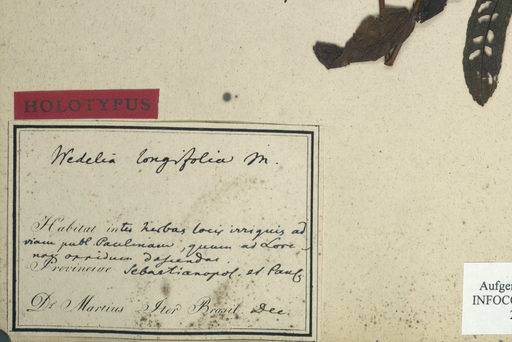 HOLOTYPUS
Wedelia longifolia m.
Habitat inter herbas locis irriguis ad
viam publ. Paulinam, quum ad Lore-
nox oppidum
Provinciae Sebastianopol. et Paul.
Dr Martius Iter Brasil. Dec.
Aufge
INFOCO
2